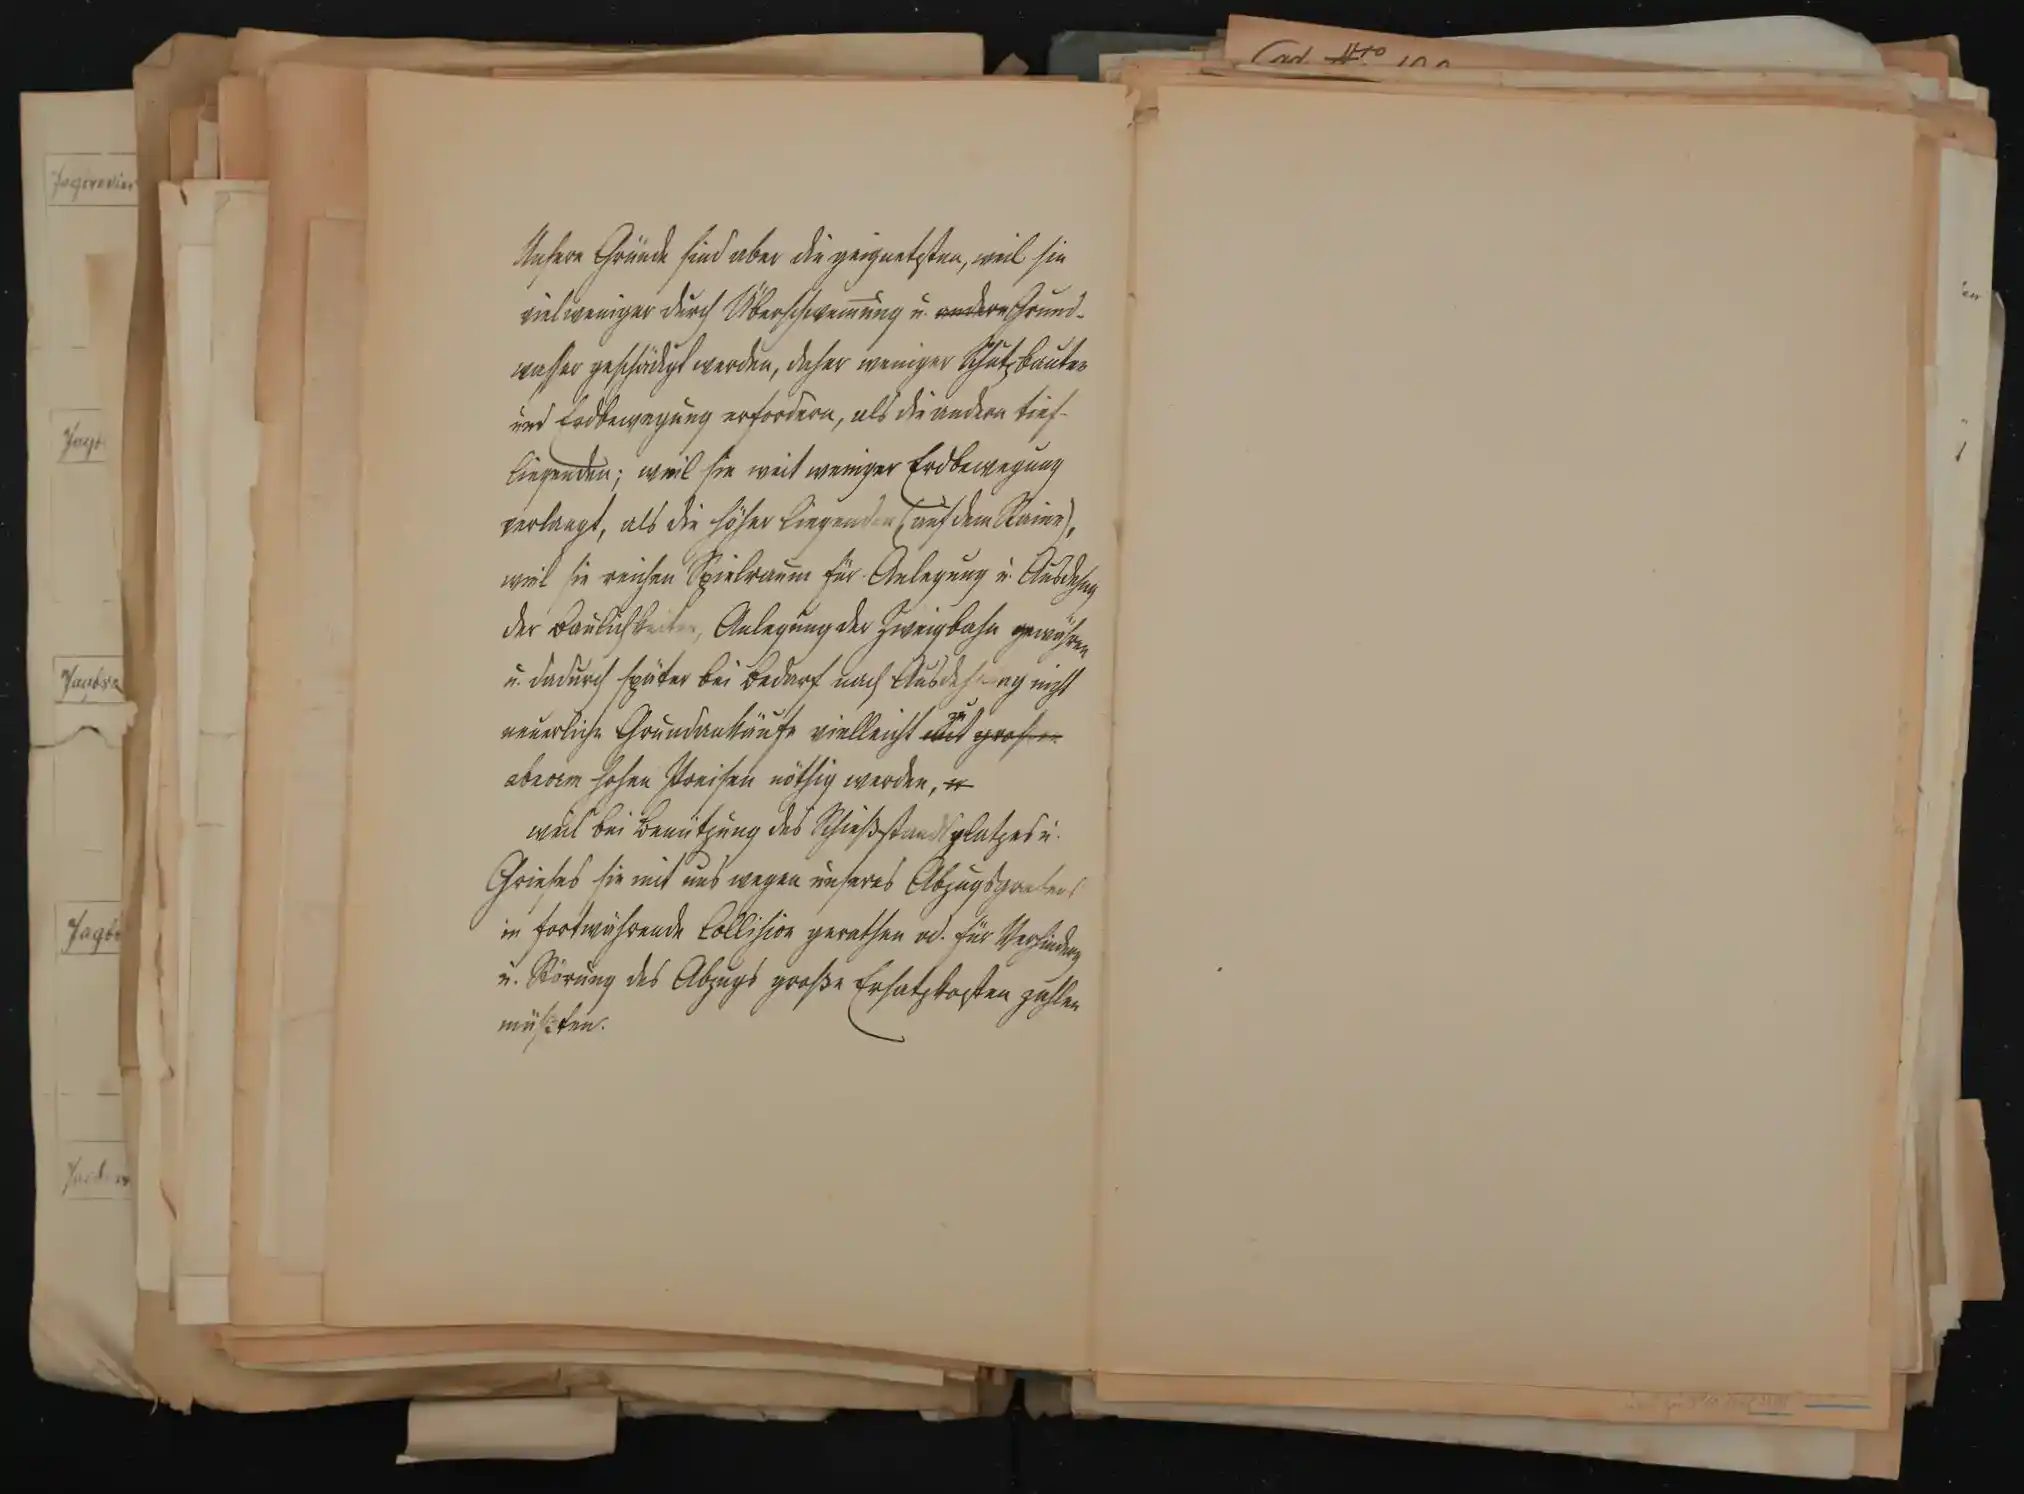 Jagdrevier
Unsere Gründe sind aber die geignetsten, weil sie
viel weniger durch Überschwem̅ung u. andere Grund-
wasser geschädigt werden, daher weniger Schutzbauten
und Erdbewegung erfordern, als die andern tief-
liegenden; weil sie weit weniger Erdbewegung
verlangt, als die höher liegenden (auf dem Raine),
weil sie reichen Spielraum für Anlegung u. Ausdehng
der Baulichkeiten, Anlegung der Zweigbahn gewähren
u. dadurch später bei Bedarf nach Ausdehnung nicht
neuerliche Grundankäufe vielleicht mit zu großen
abnorm hohen Preisen nöthig werden, u
weil bei Benützung des Schießstandsplatzes u.
Grieses sie mit uns wegen unseres Abzugsgrabens
in fortwährende Collision gerathen od. für Verhinderg
u. Störung des Abzugs große Ersatzkosten zahlen
müßten.